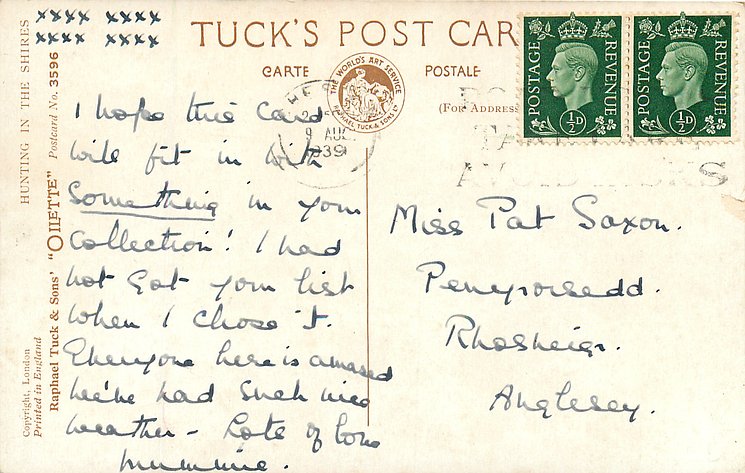 xxxx xxxx
xxxx xxxx
TUCK'S POST CAR
CARTE POSTALE
(FOR ADDRESS
THE WORLD'S ART SERVICE
RAPHAEL TUCK & SONS LTD
9 AUG
1939
POSTAGE REVENUE
½D
POSTAGE REVENUE
½D
HUNTING IN THE SHIRES
Raphael Tuck & Sons' "OILETTE" Postcard No. 3596
Copyright, London
Printed in England
I hope this card
will fit in with
something in your
collection! I had
not got your list
when I chose it.
Everyone here is amazed
we've had such nice
weather – Lots of love
mummie.
Miss Pat Saxon.
Rhosneigr.
Anglesey.